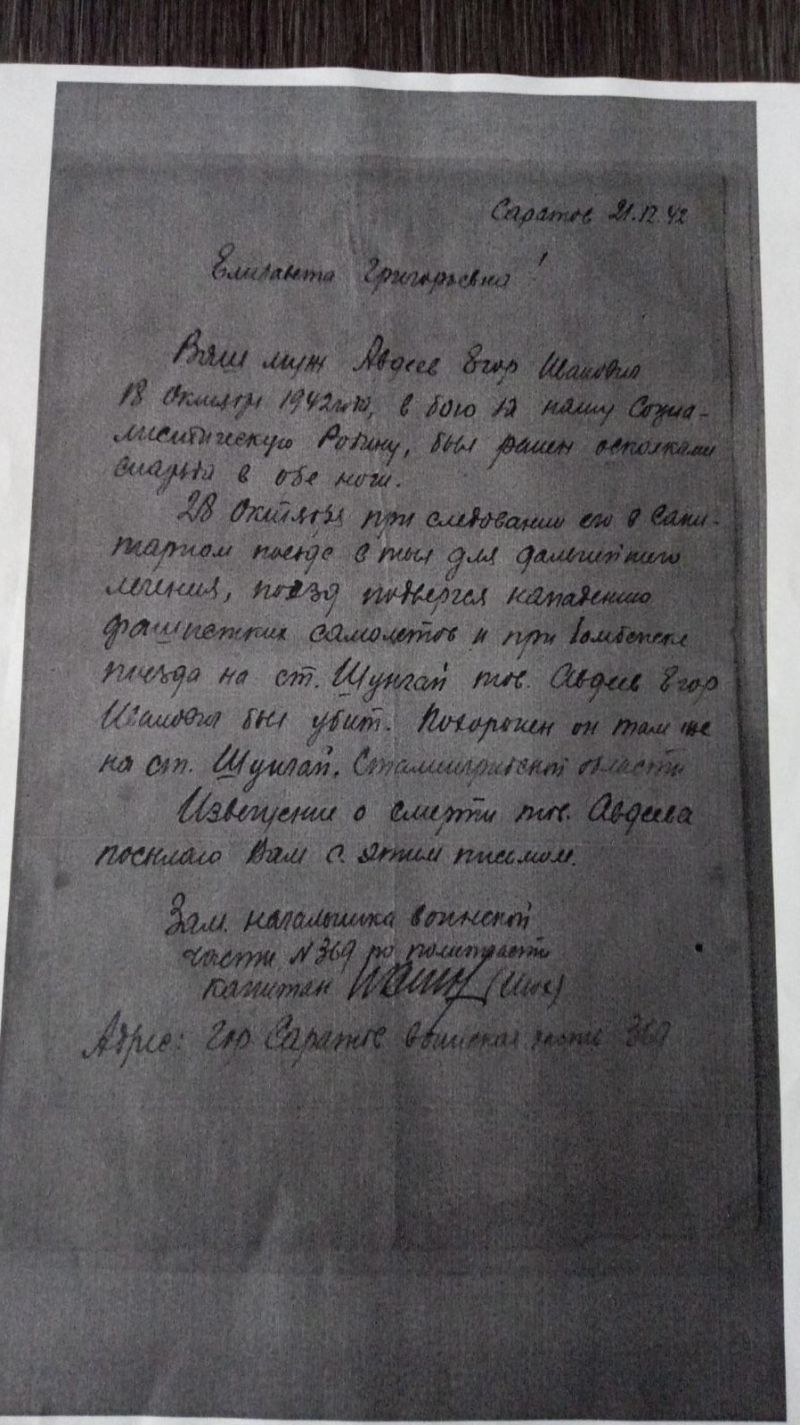 Саратов 21.12.42
Елизавета Григорьевна!
Ваш муж Авдеев Егор Иванович
18 октября 1942 года, в бою за нашу Социа-
листическую Родину, был ранен осколками
снаряда в обе ноги.
28 октября при следовании его в сани-
тарном поезде в тыл для дальнейшего
лечения, поезд подвергся нападению
фашистских самолетов и при бомбежке
поезда на ст. Шунгай тов. Авдеев Егор
Иванович был убит. Похоронен он там же
на ст. Шунгай, Сталинградской области
Извещение о смерти тов. Авдеева
посылаю Вам с этим письмом.
Зам. начальника воинской
части N 369 по политчасти
капитан
Адрес: Гор Саратов воинская часть 369